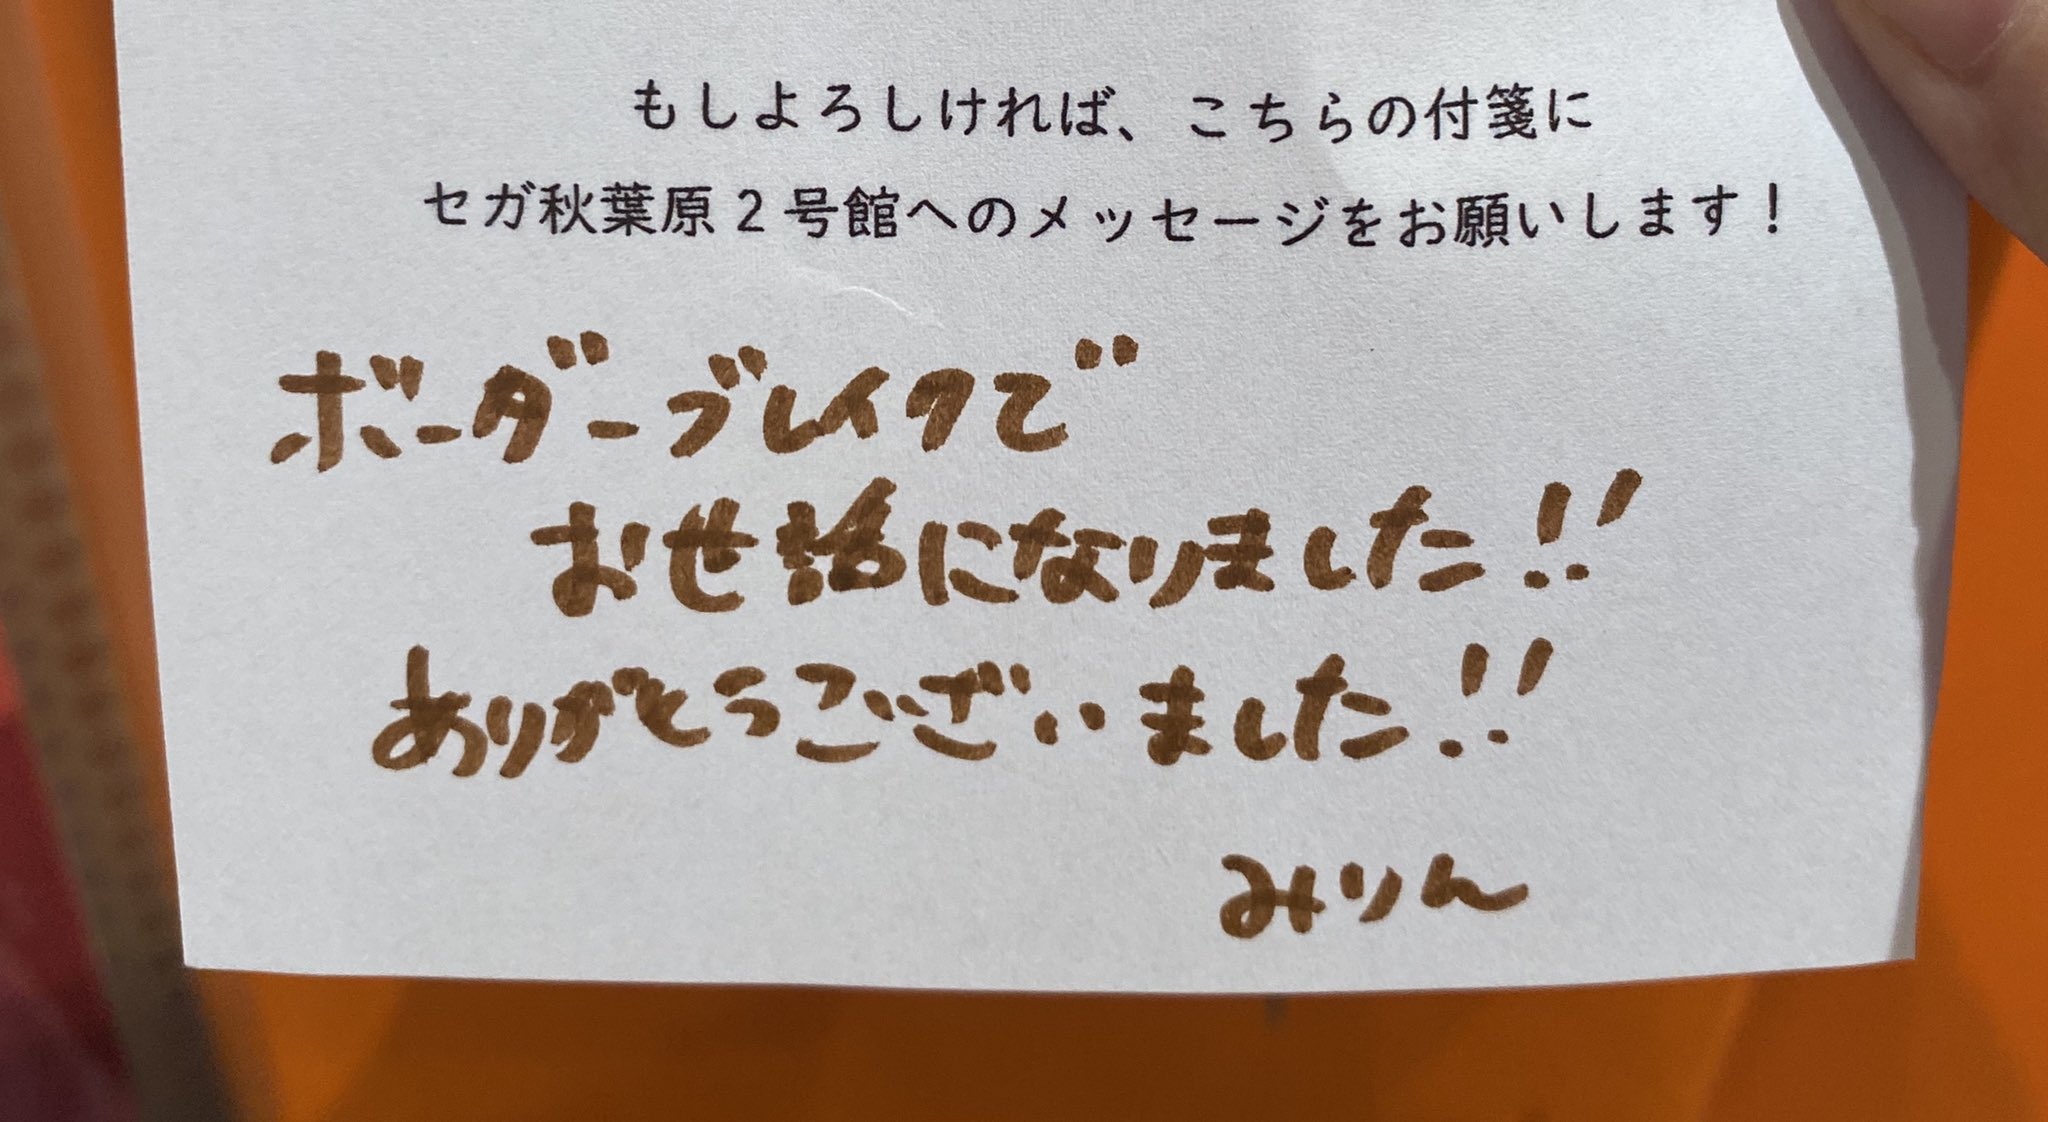 もしよろしければ、こちらの付箋に
セガ秋葉原2号館へのメッセージをお願いします！
ボーダーブレイクで
おせ話になりました!!
ありがとうございました!!
みりん